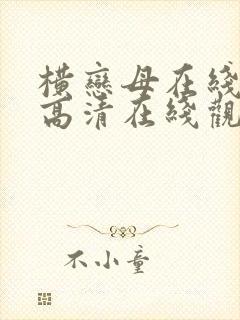 橫戀母在綫
高清在綫觀
不小童